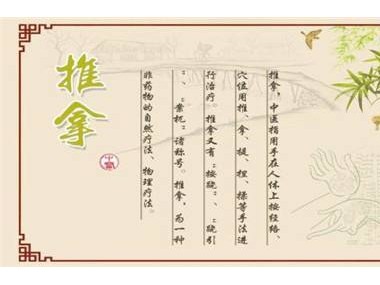 推拿
推拿，中医指用手在人体上按经络、
穴位用推、拿、提、捏、揉等手法进
行治疗。推拿又有“按跷”、“跷引
”、“案杌”诸称号。推拿，为一种
非药物的自然疗法、物理疗法。